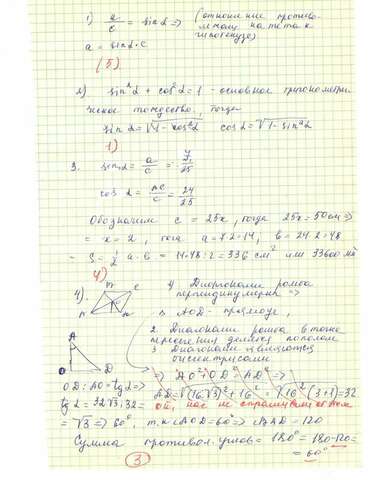 1) a/c = sin α ⇒ (отношение противо-
лежащ. катета к
гипотенузе)
a = sin α · c
(5)
2) sin²α + cos²α = 1 - основное тригонометри-
ческое тождество, тогда
sin α = √1 - cos²α cos α = √1 - sin²α
1)
3. sin α = a/c = 7/25
cos α = = 24/25
Обозначим c = 25x, тогда 25x = 50см ⇒
⇒ x = 2, тога a = 7·2 = 14, b = 24·2 = 48
S = 1/2 a·b = 14·48 : 2 = 336 см² или 33600 мм²
4)
4). 1) Диагонали ромба
перпендикулярны ⇒
⇒ AOD - прямоуг,
2. Диагонали ромба в точке
пересечения делятся пополам
3 Диагонали являются
биссектрисами
A
O D
⇒ AO² + OD² = AD² ⇒
OD : AO = tg α ⇒
AD = √(16√3)² + 16² = √16²(3+1) = 32
ой, нас не спрашивали об этом
tg α = 32√3 : 32 =
= √3 ⇒ 60°, т.к ∠AOD = 60° ⇒ ∠BAD = 120
Сумма противопол. углов = 180° = 180 - 120 =
= 60°
(3)